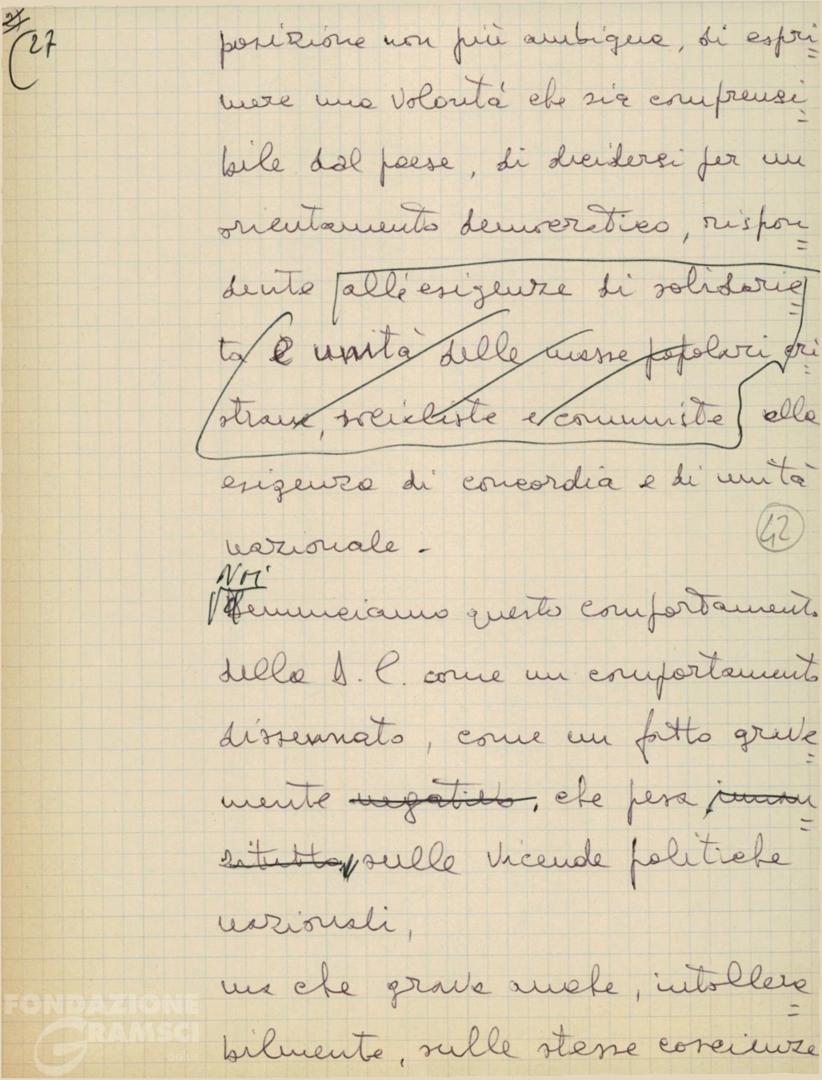 27
posizione non più ambigua, di espri
mere una volontá che sia comprensi
bile dal paese, di decidersi per un
orientamento democratico, rispon
dente all'esigenze di solidarie
tà e unità delle masse popolari cri
stiane, socialiste e comuniste alla
esigenza di concordia e di unità
nazionale.
42
Noi
denunciamo questo comportamento
della D.C. come un comportamento
dissennato, come un fatto grave
mente negativo, che pesa innan
zitutto, sulle vicende politiche
nazionali,
ma che grava anche, intollera
bilmente, sulle stesse coscienze
FONDAZIONE
GRAMSCI